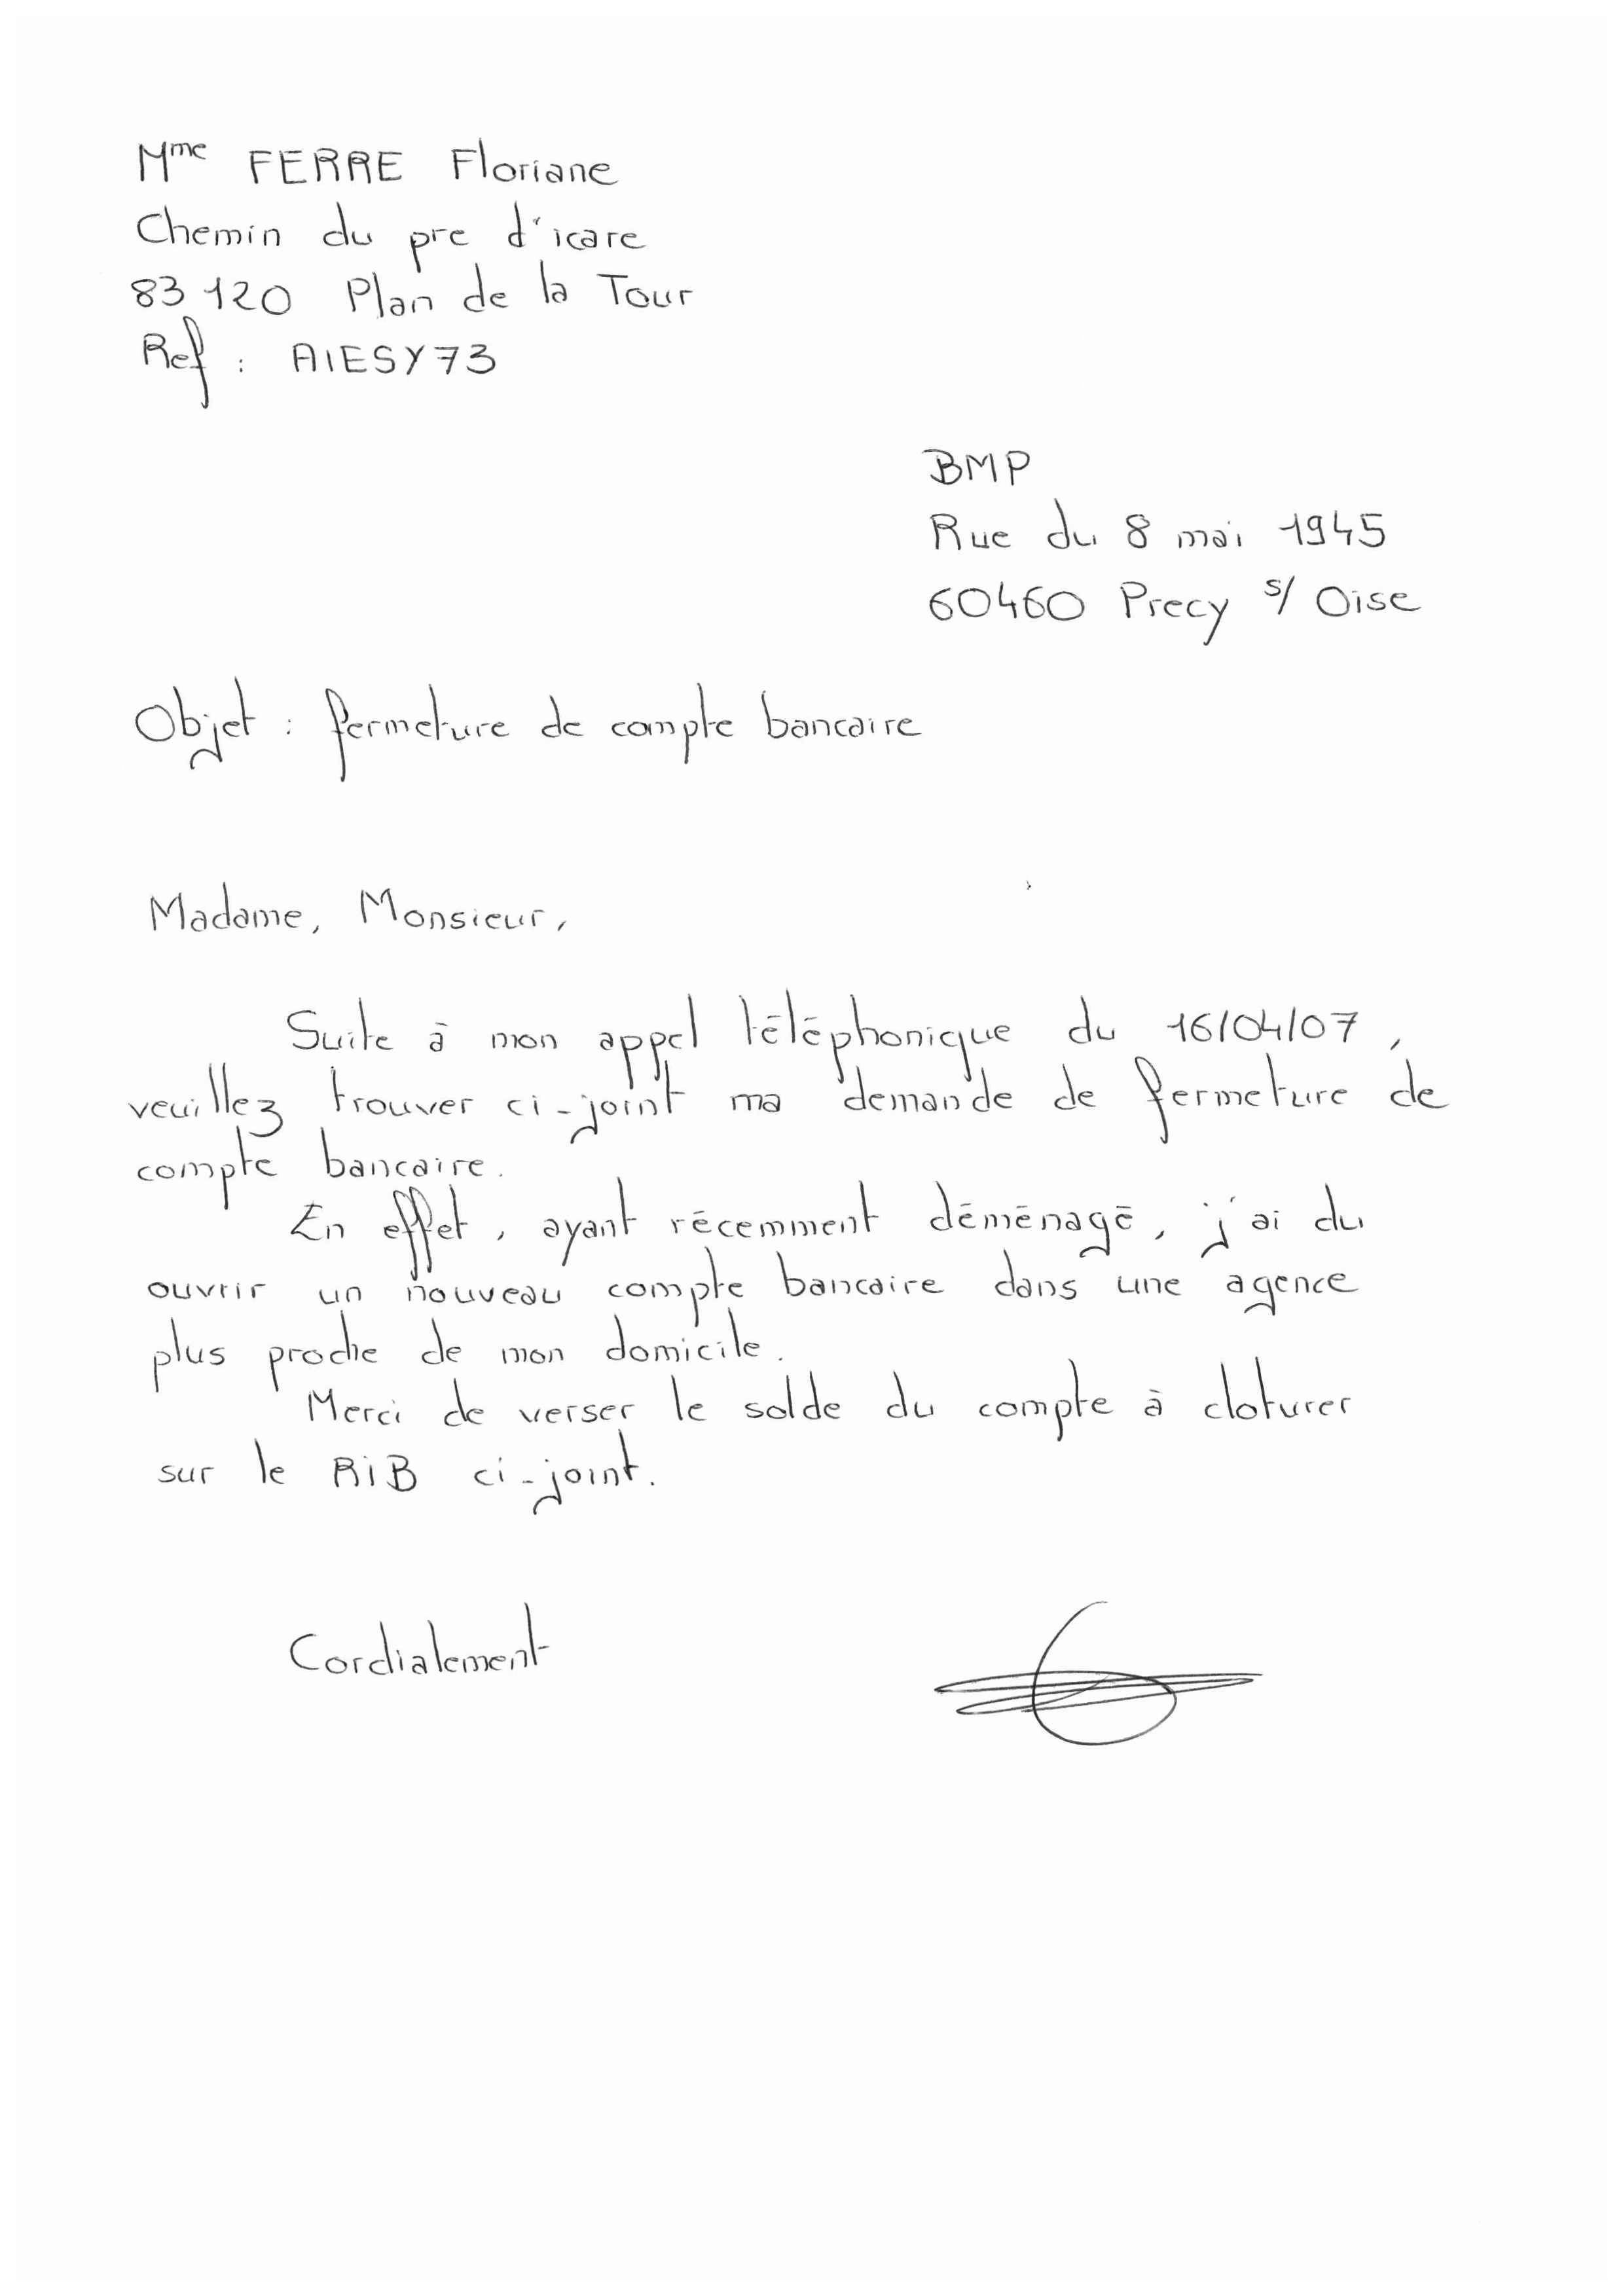 Mme FERRE Floriane
Chemin du pre d'icare
83120 Plan de la Tour
Ref : AIESY73
BMP
Rue du 8 mai 1945
60460 Precy s/ Oise
Objet : fermeture de compte bancaire
Madame, Monsieur,
Suite à mon appel téléphonique du 16/04/07,
veuillez trouver ci-joint ma demande de fermeture de
compte bancaire.
En effet, ayant récemment déménagé, j'ai du
ouvrir un nouveau compte bancaire dans une agence
plus proche de mon domicile.
Merci de verser le solde du compte à cloturer
sur le RiB ci-joint.
Cordialement